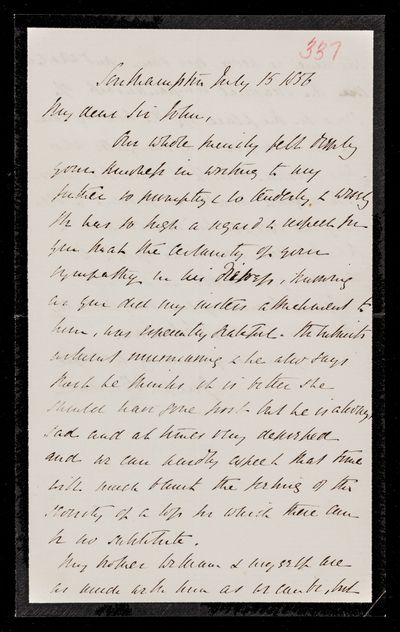 337
Southampton July 15 1856
My dear Sir John,
Our whole family felt deeply
your kindness in writing to my
father so promptly & so tenderly, &
He has so high a regard & respect for
you that the certainty of your
sympathy in his distress, knowing
as you did my sisters attachment to
him, was especially grateful. He submits
without murmuring & he also says
that he thinks it is better she
should have gone first but he is always
sad and at times very depressed
and we can hardly expect that time
will much blunt the feeling of the
of a loss for which there can
be no substitute.
My brother William & myself are
as much with him as we can be, but